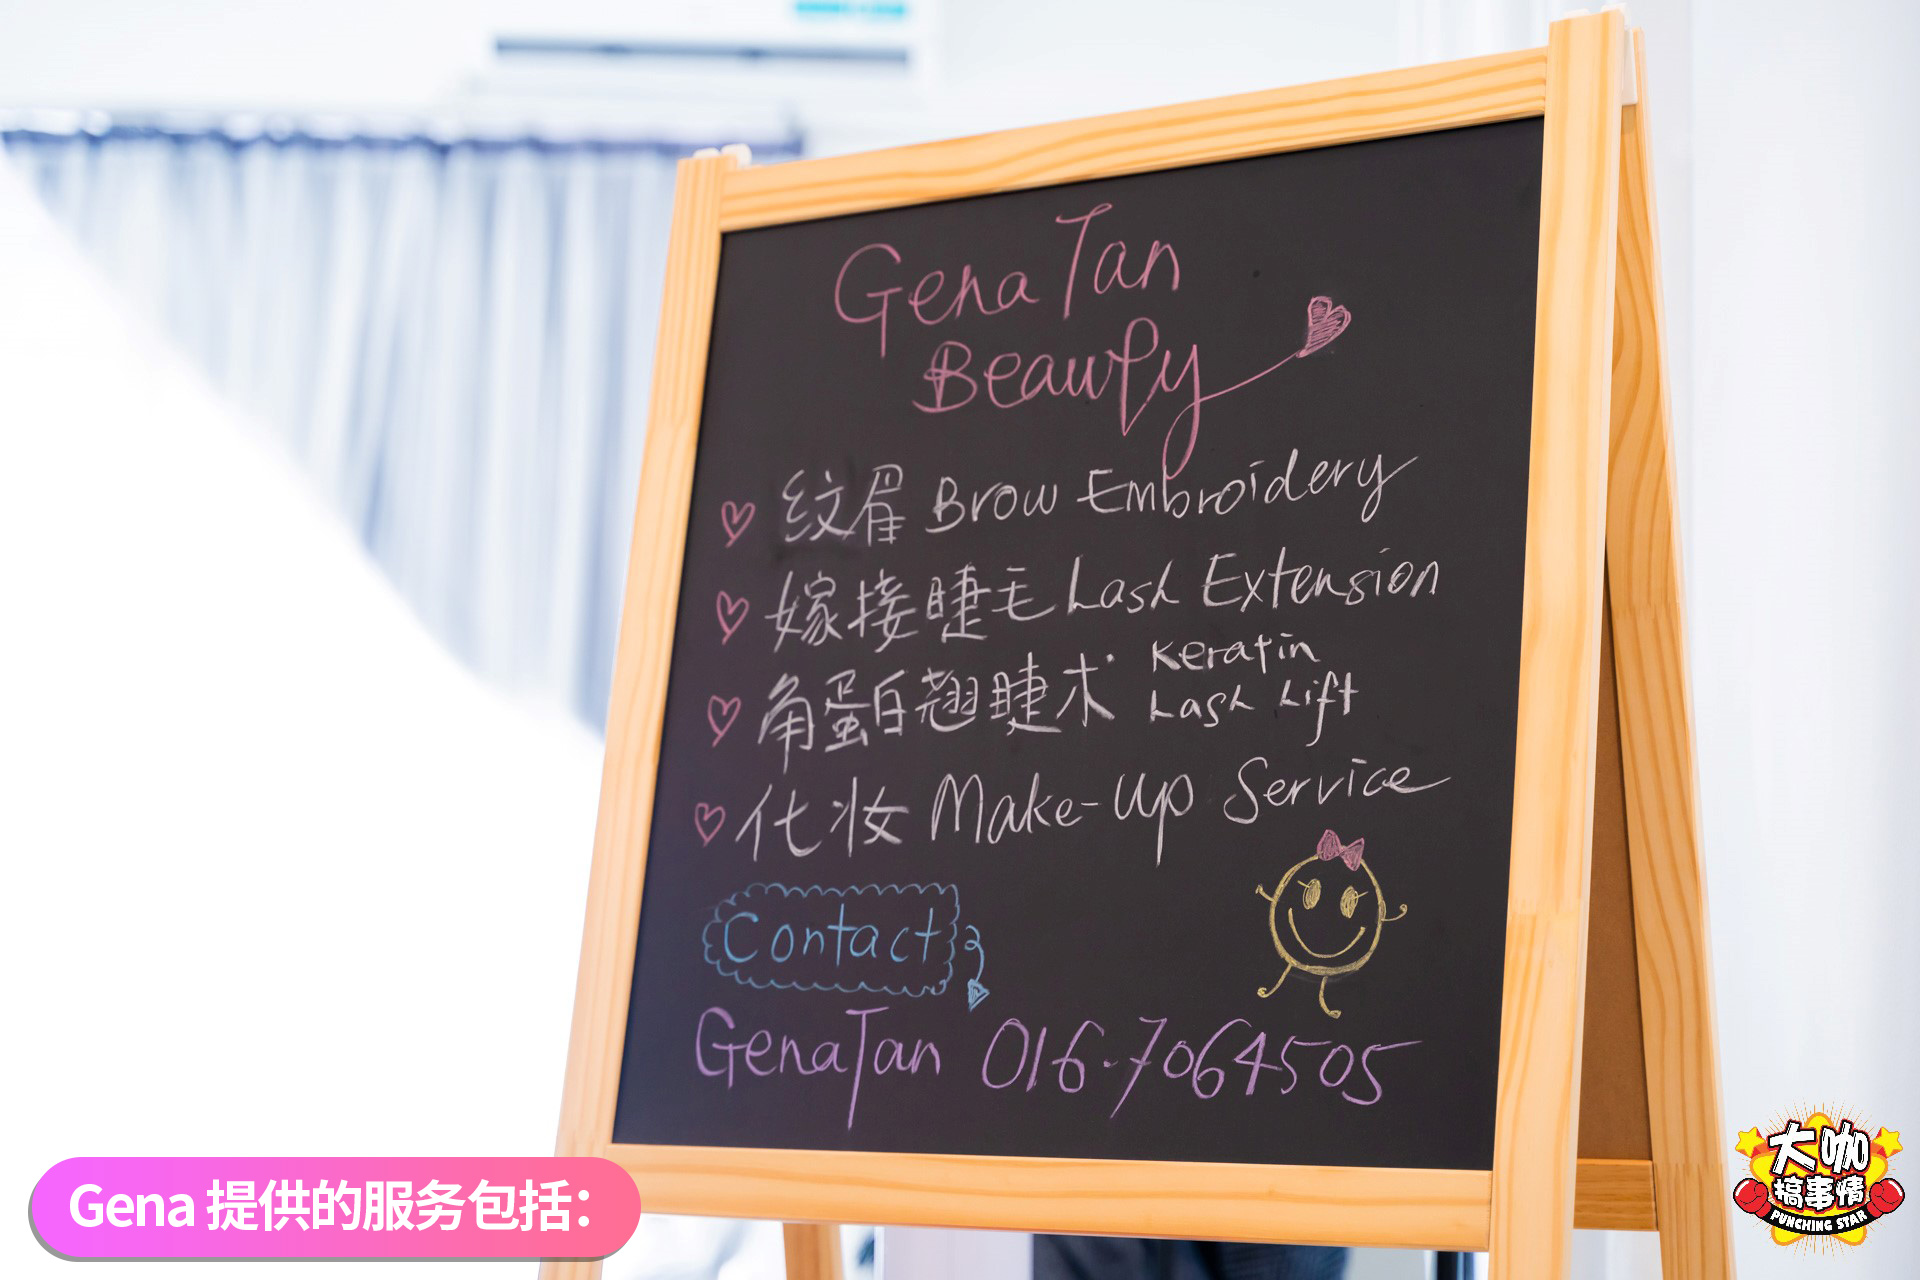 Gena Tan
Beauty
纹眉 Brow Embroidery
嫁接睫毛 Lash Extension
角蛋白翘睫术 Keratin
Lash Lift
化妆 Make-Up Service
Contact
Gena Tan 016-7064505
Gena 提供的服务包括：
大咖
搞事情
PUNCHING STAR